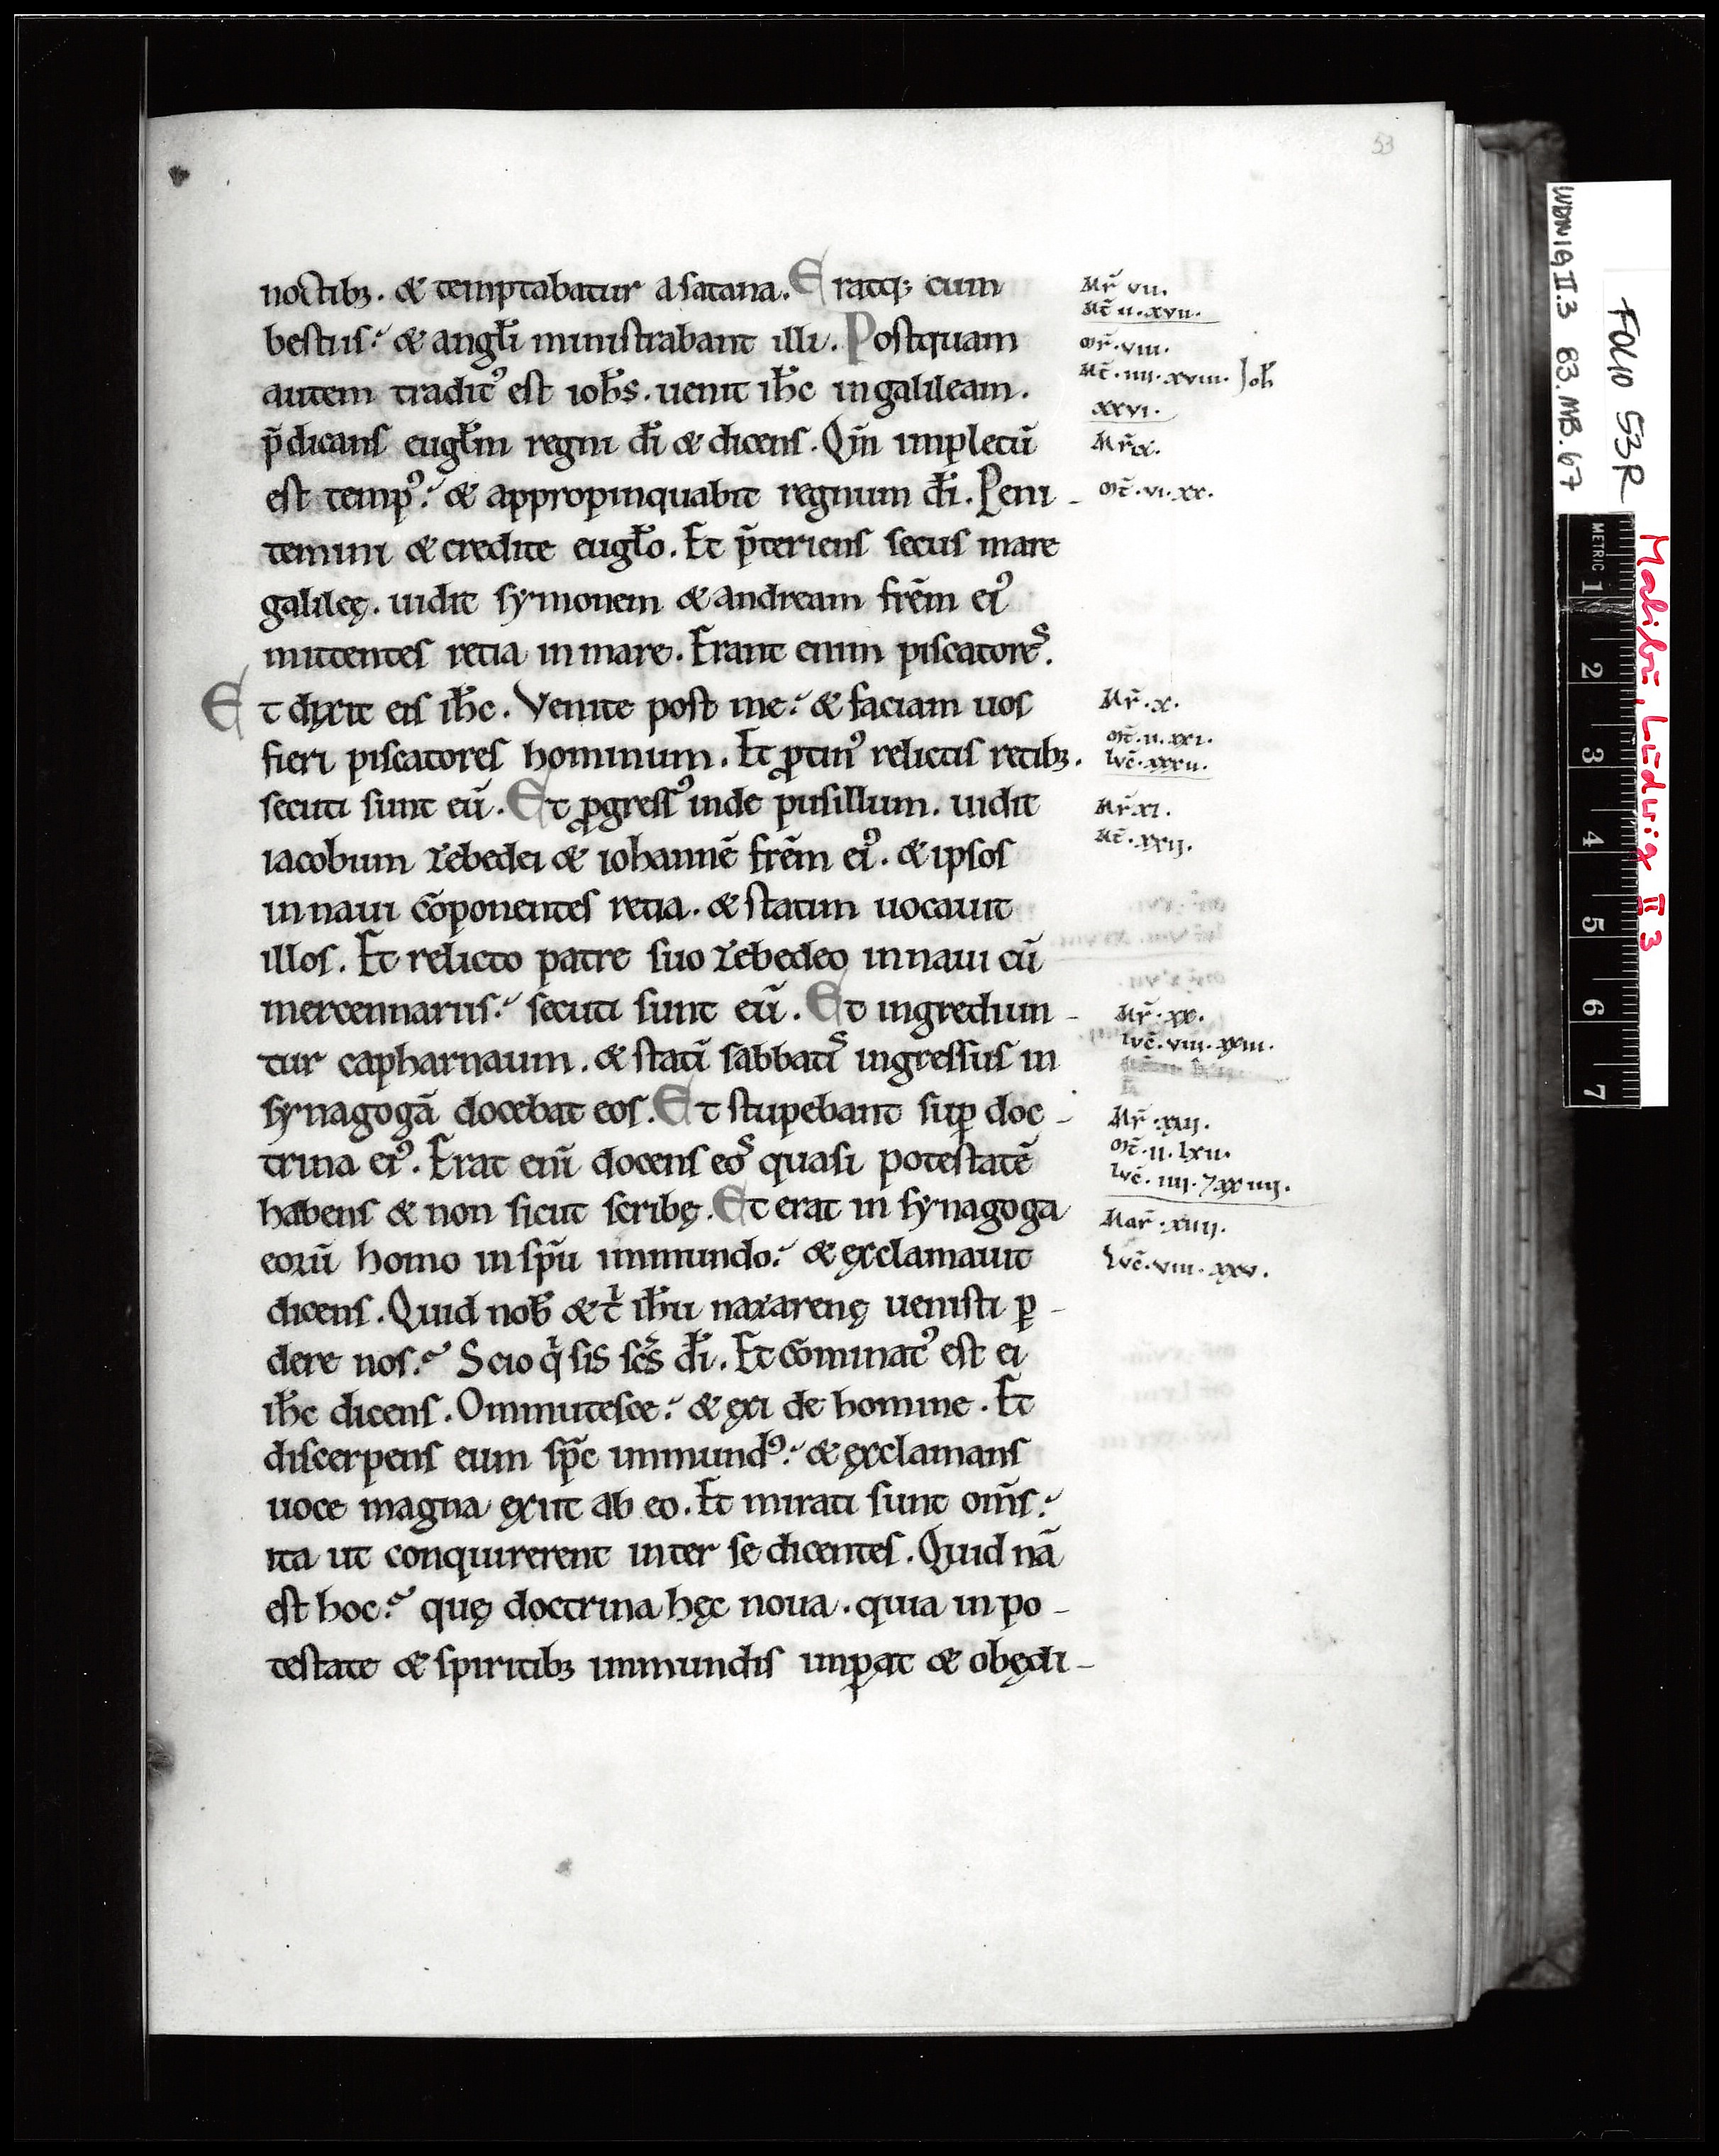 53
noctibꝫ. & temptabatur a satana. Eratqꝫ cum
bestiis. & angłi ministrabant illi. Postquam
autem traditꝰ est ioħs. uenit iħc in galileam.
p̄dicans eugłm regni dī & dicens. Qm̄ impletū
est tempꝰ. & appropinquabit regnum dī. Peni-
temini & credite eugło. Et p̄teriens secus mare
galileę. uidit symonem & andream frēm eiꝰ
mittentes retia in mare. Erant enim piscatores.
Et dixit eis iħc. Venite post me. & faciam uos
fieri piscatores hominum. Et ꝓtinꝰ relictis retibꝫ.
secuti sunt eū. Et ꝓgressꝰ inde pusillum. uidit
iacobum zebedei & iohannē frēm eiꝰ. & ipsos
in naui cōponentes retia. & statim uocauit
illos. Et relicto patre suo zebedeo in naui cū
mercennariis. secuti sunt eū. Et ingrediun-
tur capharnaum. & statī sabbatis ingressus in
synagogā docebat eos. Et stupebant suꝑ doc-
trina eiꝰ. Erat enī docens eos quasi potestatē
habens & non sicut scribę. Et erat in synagoga
eorū homo in spū immundo. & exclamauit
dicens. Quid nob̄ & t̄ iħu nazarenę uenisti ꝑ-
dere nos. Scio q̄ sis scs̄ dī. Et cōminatꝰ est ei
iħc dicens. Ommutesce. & exi de homine. Et
discerpens eum spc̄ immundꝰ. & exclamans
uoce magna exiit ab eo. Et mirati sunt om̄s.
ita ut conquirerent inter se dicentes. Quid nā
est hoc. quę doctrina hęc noua. quia in po-
testate & spiritibꝫ immundis imꝑat & obędi-
Mr̄ vii.
Mt̄ ii. xvii.
Mr̄. viii.
Mt̄. iiii. xviii. Joħ
xxvi.
Mr̄ ix.
Mt̄. vi. xx.
Mr̄. x.
Mt̄. ii. xxi.
Luc̄. xxxii.
Mr̄. xi.
Mt̄. xxij.
Luc̄. viii. xxiii.
Mr̄. xiij.
Mt̄. ii. lxii.
Mar̄. xiiij.
Luc̄. viii. xxv.
FOLIO 53R
LUDWIG II.3 83.MB.67
Malibu, Ludwig II 3
METRIC 1 2 3 4 5 6 7